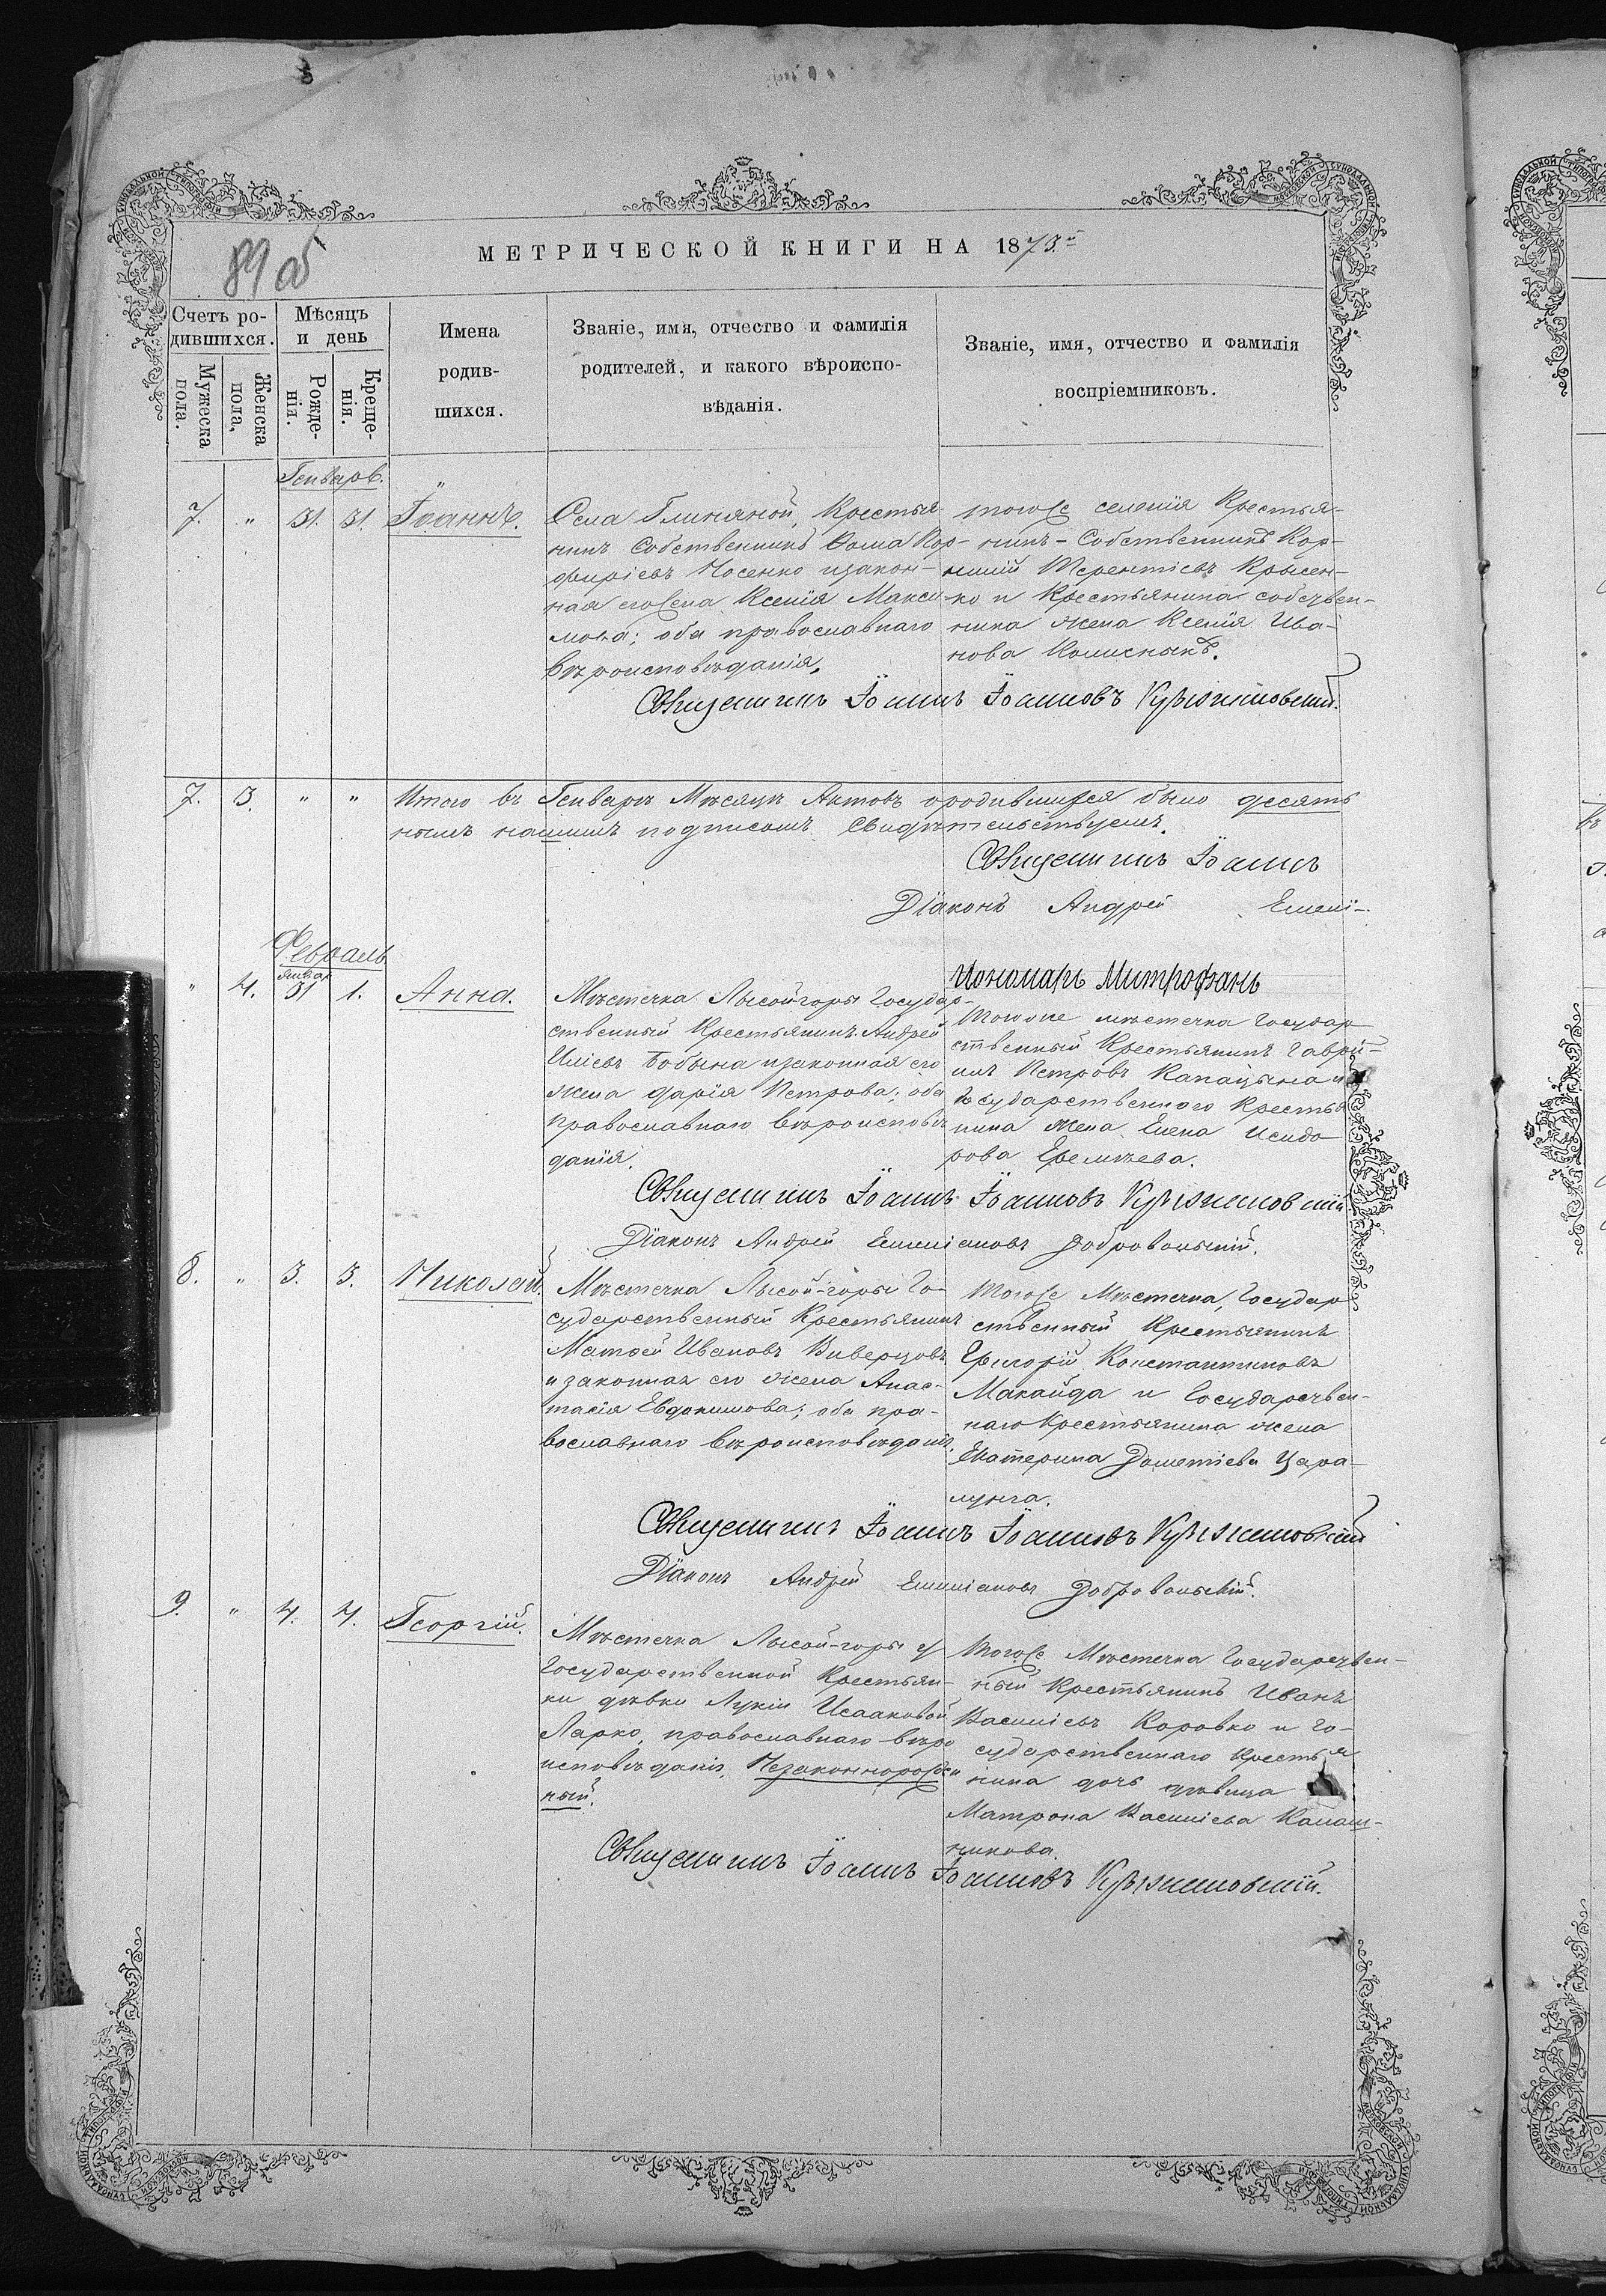 89 об
МЕТРИЧЕСКОЙ КНИГИ НА 1873.й
Счетъ ро-
дившихся.
Мужеска пола.
Женска пола,
Мѣсяцъ
и день
Рожде-
нія.
Креще-
нія.
Имена
родив-
шихся.
Званіе, имя, отчество и фамилія
родителей, и какого вѣроиспо-
вѣданія.
Званіе, имя, отчество и фамилія
воспріемниковъ.
Генварь.
7. " 31. 31. Іоаннъ.
Села Глиняной, Крестья-
нинъ Собственникъ Ѳома Пор-
фиріевъ Носенко и закон-
ная его жена Ксенія Макси-
мова; оба православнаго
вѣроисповѣданія.
того же селенія Крестья-
нинъ-Собственникъ Кор-
нилій Терентіевъ Крысен-
ко и Крестьянина собствен-
ника жена Ксенія Ива-
нова
Священникъ Іоаннъ Іоанновъ Крыжановскій.
7. 3. " " Итого въ Генварѣ Мѣсяцѣ Актовъ о родившихся было десять
нымъ нашимъ подписомъ Свидѣтельствуемъ.
Священникъ Іоаннъ
Діаконъ Андрей Емелі-
Пономарь Митрофанъ
Февраль
" 4. Январ 31 1. Анна.
Мѣстечка Лысой горы Государ-
ственный Крестьянинъ Андрей
Иліевъ Бобына и законная его
жена Дарія Петрова; оба
православнаго вѣроисповѣ
данія.
Того же мѣстечка Государ
ственный Крестьянинъ Гаврі-
илъ Петровъ Капацына и
Государственнаго Крестья
нина жена Елена Исидо
рова Еремѣева.
Священникъ Іоаннъ Іоанновъ Крыжановскій
Діаконъ Андрей Емиліановъ Добровольскій.
8. " 3. 3. Николай.
Мѣстечка Лысой-горы Го-
сударственный Крестьянинъ
Матѳей Ивановъ Виверцовъ
и законная его жена Анас-
тасія Евдокимова; оба пра-
вославнаго вѣроисповѣданія.
Того же Мѣстечка, Государ
ственный Крестьянинъ
Григорій Константиновъ
Макайда и Государствен-
наго Крестьянина жена
Екатерина Дометіева Цара-
лунга.
Священникъ Іоаннъ Іоанновъ Крыжановскій
Діаконъ Андрей Емиліановъ Добровольскій.
9. " 4. 4. Георгій.
Мѣстечка Лысой-горы у
Государственной Крестьян-
ки дѣвки Лукіи Исааковой
Ларко, православнаго вѣро
исповѣданія. Незаконнорожден
ный.
Того же Мѣстечка Государствен-
ный Крестьянинъ Иванъ
Василіевъ Коровко и Го-
сударственнаго Крестья
нина дочь дѣвица
Матрона Василіева Калаш-
никова.
Священникъ Іоаннъ Іоанновъ Крыжановскій.